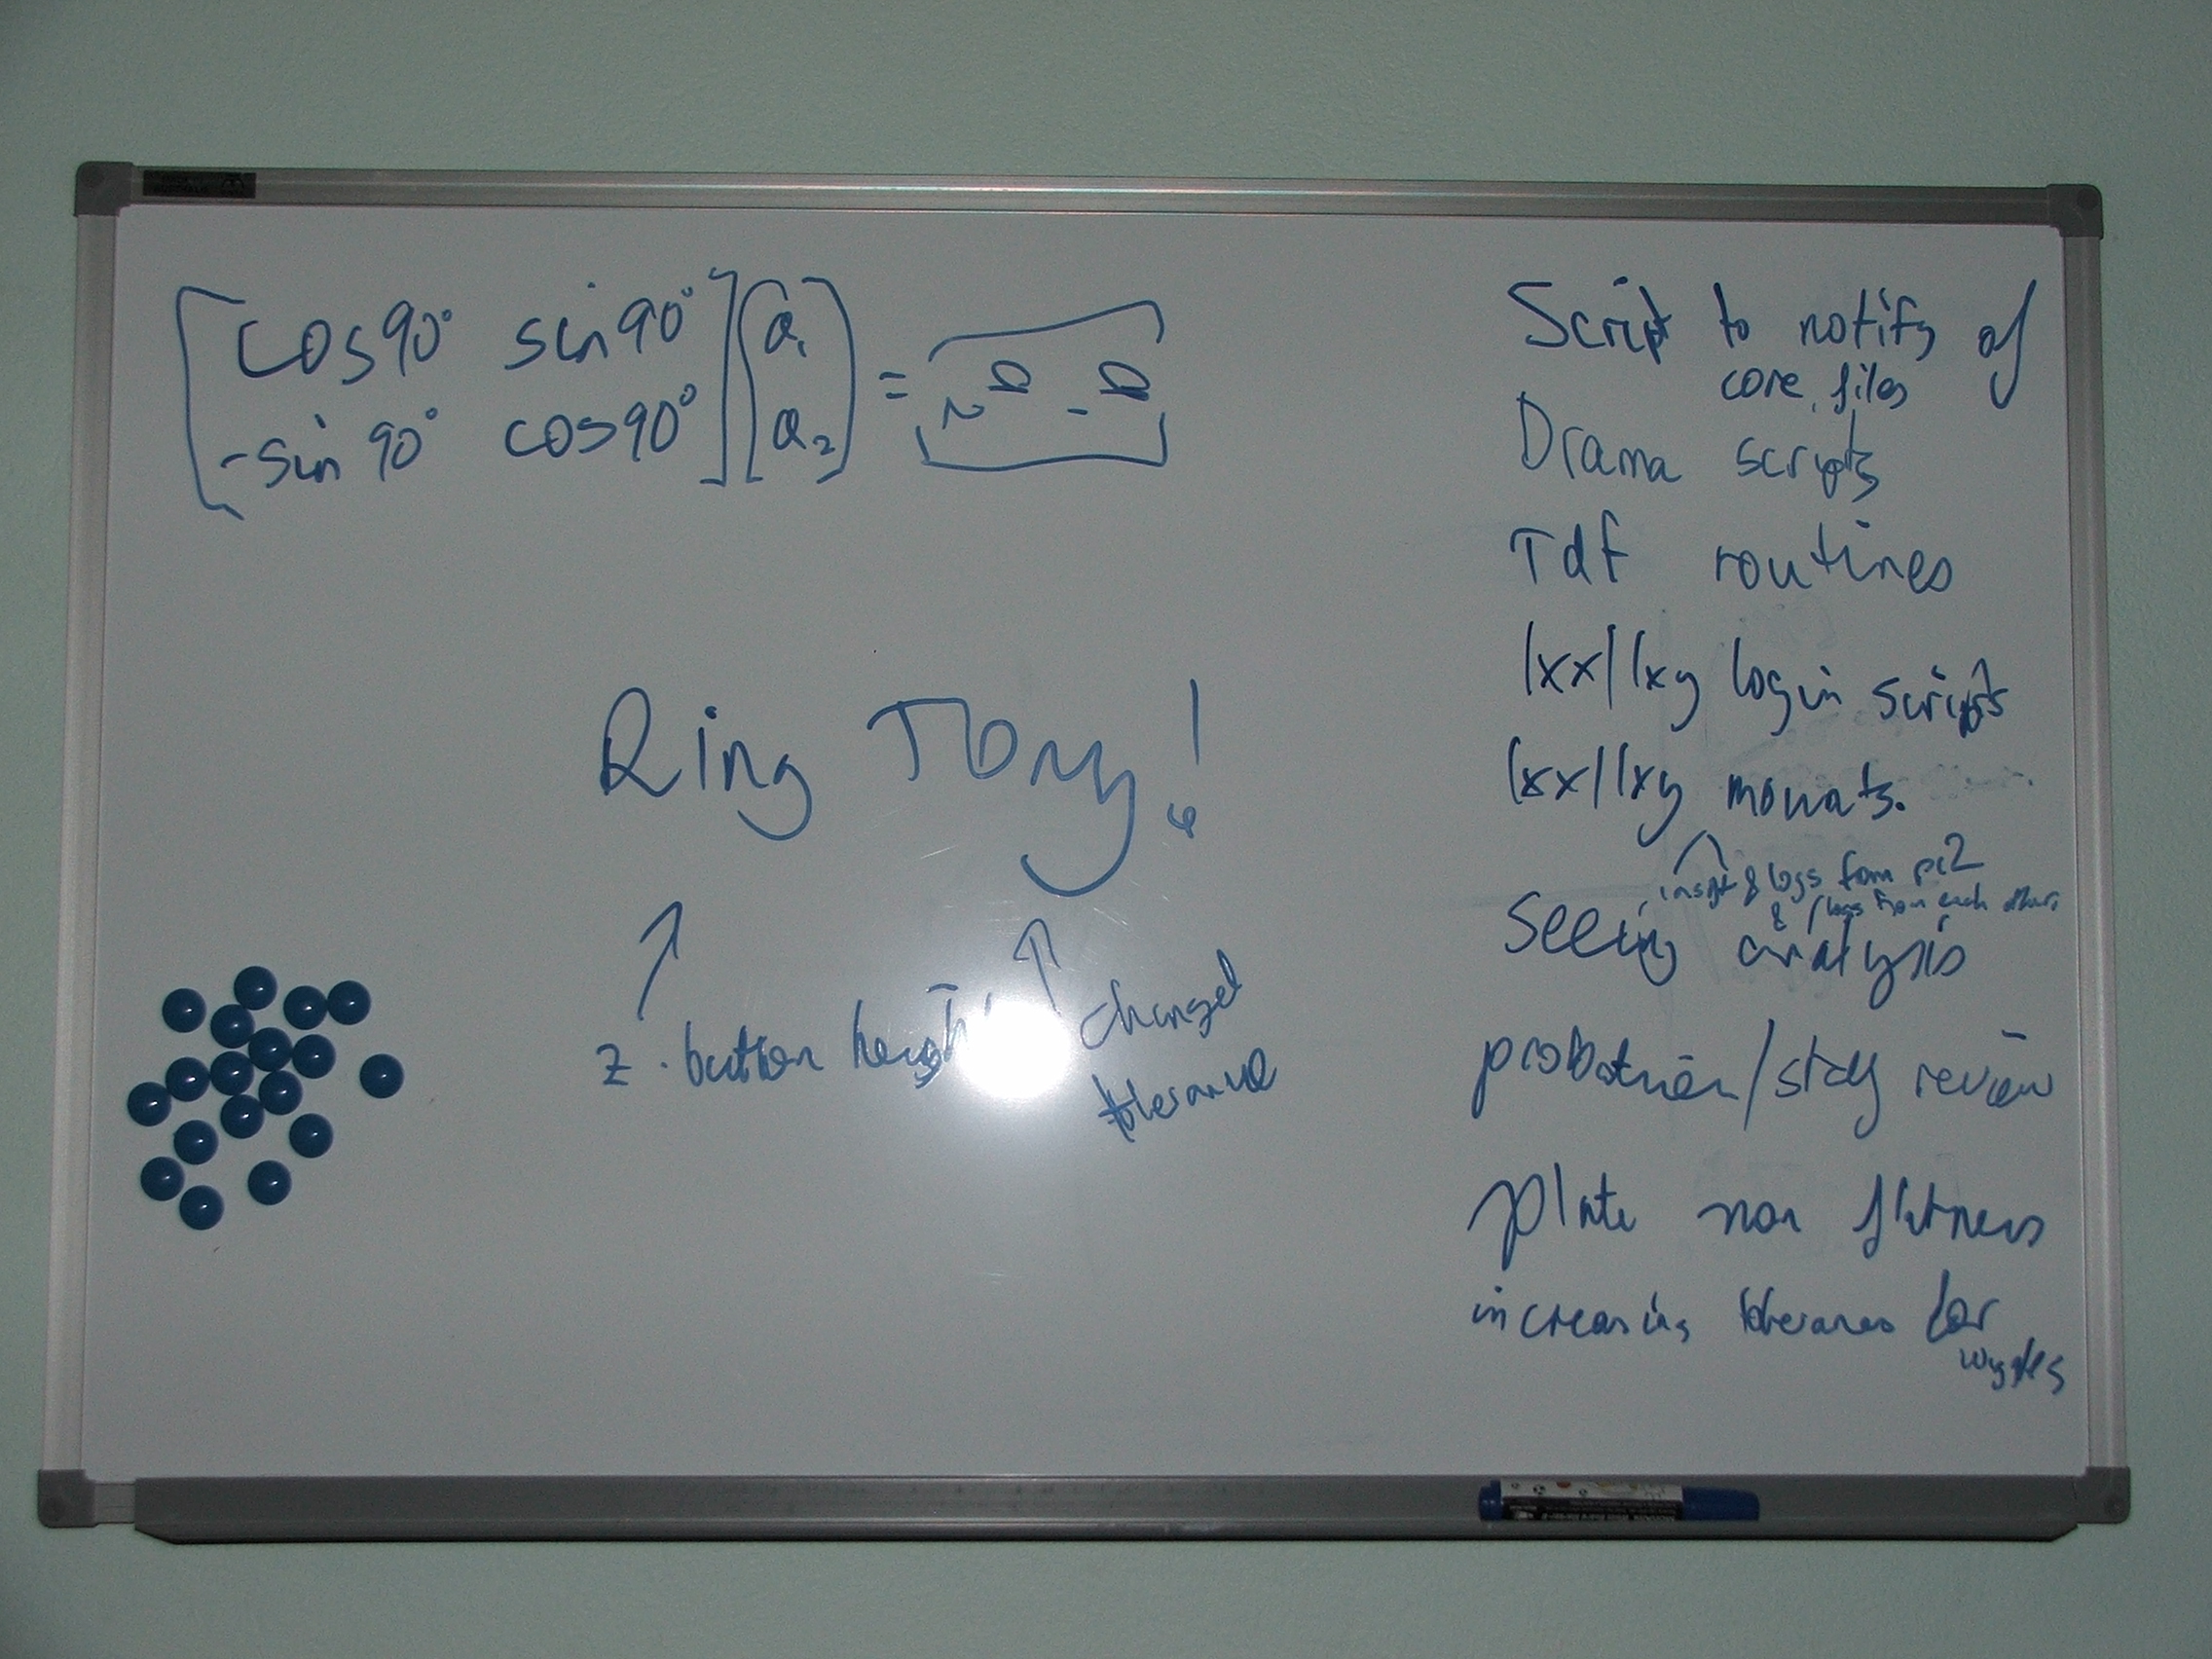 cos90° sin90° a₁ =
-sin90° cos90° a₂
Ring Tony!
z. button height
changed
tolerance
Script to notify of
core files
Drama scripts
Tdf routines
lxx/lxy login scripts
lxx/lxy mounts.
& logs from pc2
& logs from each other
Seeing analysis
probation/study review
plate non flatness
increasing tolerances for
wiggles